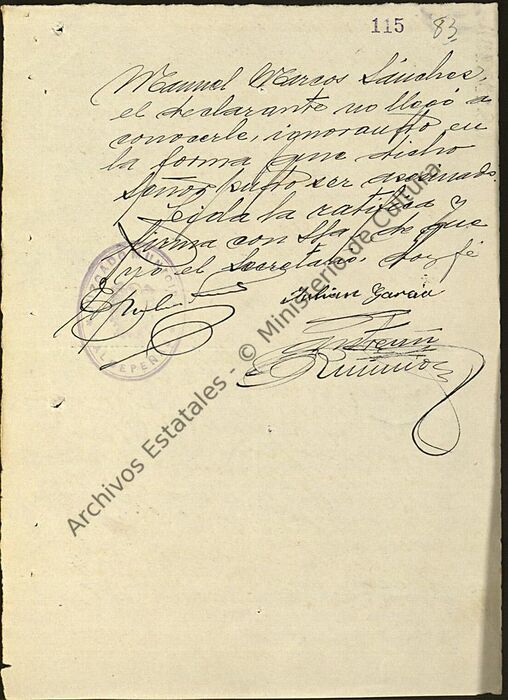 115 83
Manuel Marcos Sánchez,
el declarante no llegó a
conocerle, ignorando en
la forma que dicho
Señor pudo ser asesinado.
Leida la ratifica y
firma con SSª, de que
yo el Secretario, doy fé
Julian Garcia
JUZGADO MUNICIPAL
Archivos Estatales - © Ministerio de Cultura